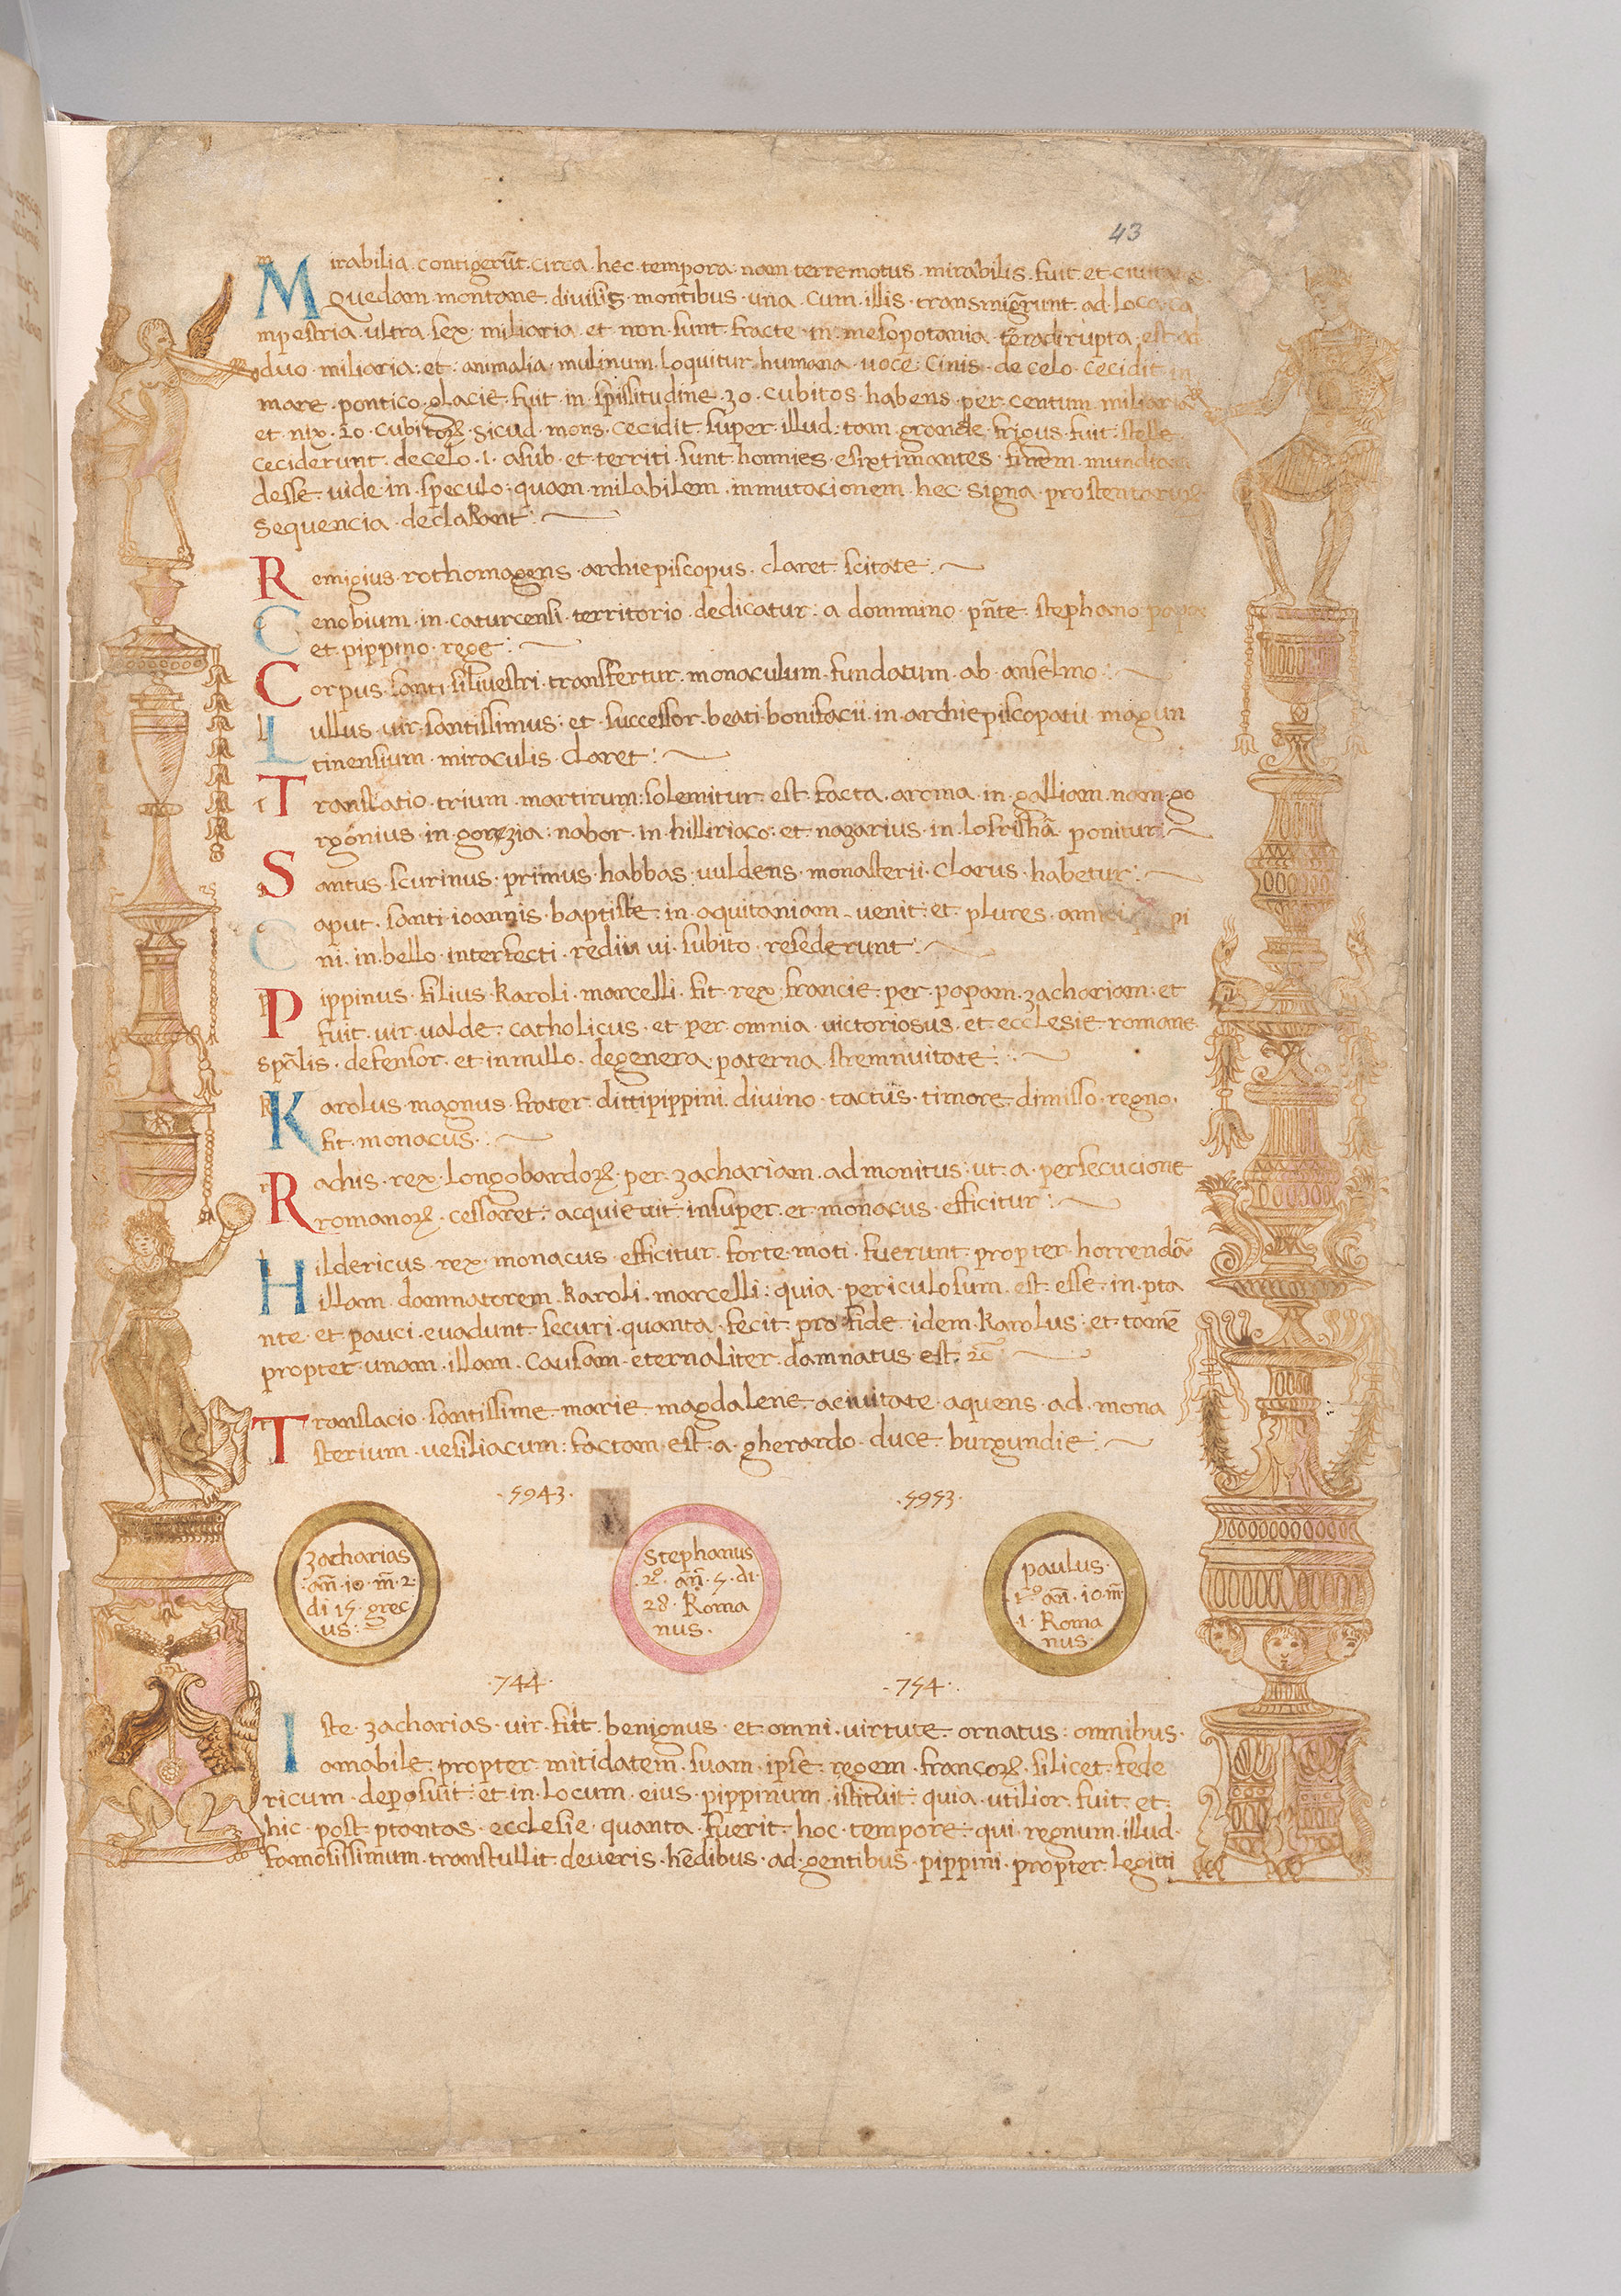 43
Mirabilia · contigerūt · circa · hec · tempora · nam · terremotus · mirabilis · fuit · et
Quedam · montane · divisis · montibus · una · cum · illis · transmigrunt · ad · loca ca
mpestria · ultra · sex · miliaria · et · non · sunt · fracte · in · mesopotamia · est
duo · miliaria · et · animalia · mulinum · loquitur · humana · uoce · Cinis · de celo · cecidit in
mare · pontico · glacie · fuit · in · spissitudine · 30 · cubitos · habens · per · centum · miliaria
et · nix · 20 · cubitoꝝ · sicud · mons · cecidit · super · illud · tam · grande · frigus · fuit · stelle
ceciderunt · de celo · 1 · asub · et · territi · sunt · homnies · esixtimantes · finem · mundi
desse · uide · in · speculo · quam · milabilem · inmutacionem · hec · signa · prostentarum
Sequencia · declarant ·
Remigius · rothomagens · archiepiscopus · claret · scitate ·
Cenobium · in · caturcensi · territorio · dedicatur · a dommino · pñte · stephano · papa
et · pippino · rege ·
Corpus · santi · siluestri · transfertur · monaculum · fundatum · ab · anselmo ·
Lullus · uir · santissimus · et · successor · beati · bonifacii · in · archiepiscopatu · magun
tinensium · miraculis · claret ·
Translatio · trium · martirum : solemitur · est · facta · aroma · in · galliam · nam · go
rgonius · in · gorezia : nabor · in · hilliriaco : et · nazarius · in · ponitur
Santus · scurinus · primus · habbas · uuldens · monasterii · clarus · habetur ·
Caput · santi · ioannis · baptiste · in · aquitaniam · uenit · et · plures · amici pi
ni · in · bello · interfecti · rediu ui · subito · resederunt ·
Pippinus · filius · Karoli · marcelli · fit · rex · francie · per · papam · zachariam · et
fuit · uir · ualde · catholicus · et · per · omnia · uictoriosus · et · ecclesie · romane
spālis · defensor · et in nullo · degenera · paterna · stremnuitate ·
Karolus · magnus · frater · dittipippini · diuino · tactus · timore · dimisso · regno ·
fit · monacus ·
Rachis · rex · longobardoꝝ · per · zachariam · admonitus · ut · a · persecucione
romanoꝝ · cessaret · acquieuit · insuper · et · monacus · efficitur ·
Hildericus · rex · monacus · efficitur · forte · moti · fuerunt · propter · horrendā
illam · damnatorem · Karoli · marcelli : quia · periculosum · est · esse · in · pta
nte · et pauci · euadunt · securi · quanta · fecit · pro fide · idem · Karolus · et · tamē
propter · unam · illam · causam · eternaliter · damnatus · est ·
Translacio · santissime · marie · magdalene · aciuitate · aquens · ad · mona
sterium · uesiliacum : factam · est · a · gherardo · duce · burgundie ·
· 5943 · · 5953 ·
zacharias
· añ · 10 · m̄ · 2
di 15 · grec
us ·
Stephanus
· 2º · añ · 5 · di ·
28 · Roma
nus ·
paulus ·
1º · añ · 10 · m̄
· 1 · Roma
nus ·
· 744 · · 754 ·
Iste · zacharias · uir · fuit · benignus · et · omni · uirtute · ornatus : omnibus ·
amabile · propter · mitidatem · suam · ipse · regem · francoꝝ · silicet · fede
ricum · deposuit · et · in · locum · eius · pippinum · istituit · quia · utilior · fuit · et
hic · post · ptantas · ecclesie · quanta · fuerit · hoc · tempore · qui · regnum · illud ·
famosissimum · transtullit · de ueris · hēdibus · ad · gentibus · pippini · propter · legitti